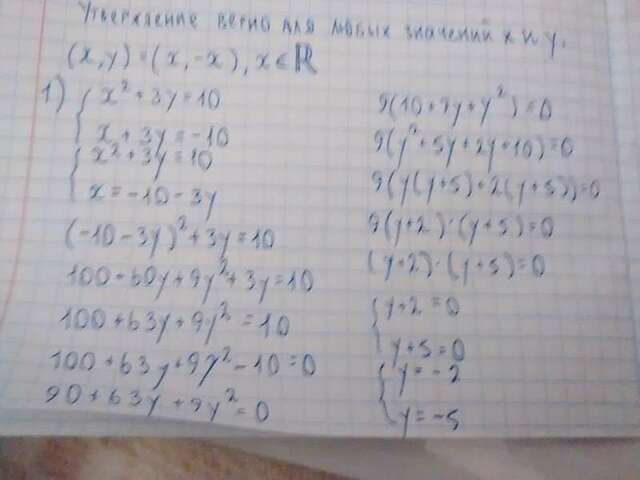 Утверждение верно для любых значений x и y.
(x, y) = (x, -x), x ∈ ℝ
1) { x² + 3y = 10
x + 3y = -10
{ x² + 3y = 10
x = -10 - 3y
(-10 - 3y)² + 3y = 10
100 + 60y + 9y² + 3y = 10
100 + 63y + 9y² = 10
100 + 63y + 9y² - 10 = 0
90 + 63y + 9y² = 0
9(10 + 7y + y²) = 0
9(y² + 5y + 2y + 10) = 0
9(y(y + 5) + 2(y + 5)) = 0
9(y + 2) · (y + 5) = 0
(y + 2) · (y + 5) = 0
{ y + 2 = 0
y + 5 = 0
{ y = -2
y = -5